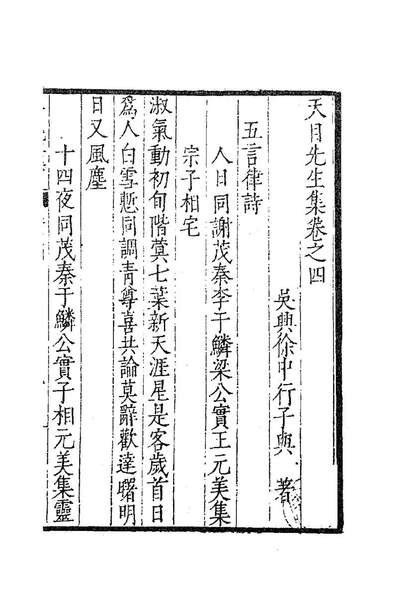 天目先生集卷之四
吳興徐中行子與 著
五言律詩
人日同謝茂秦李于鱗梁公實王元美集
宗子相宅
淑氣動初旬階蓂七葉新天涯是客歲首日
爲人白雪慙同調靑尊喜共論莫辭歡達曙明
日又風塵
十四夜同茂秦于鱗公實子相元美集靈